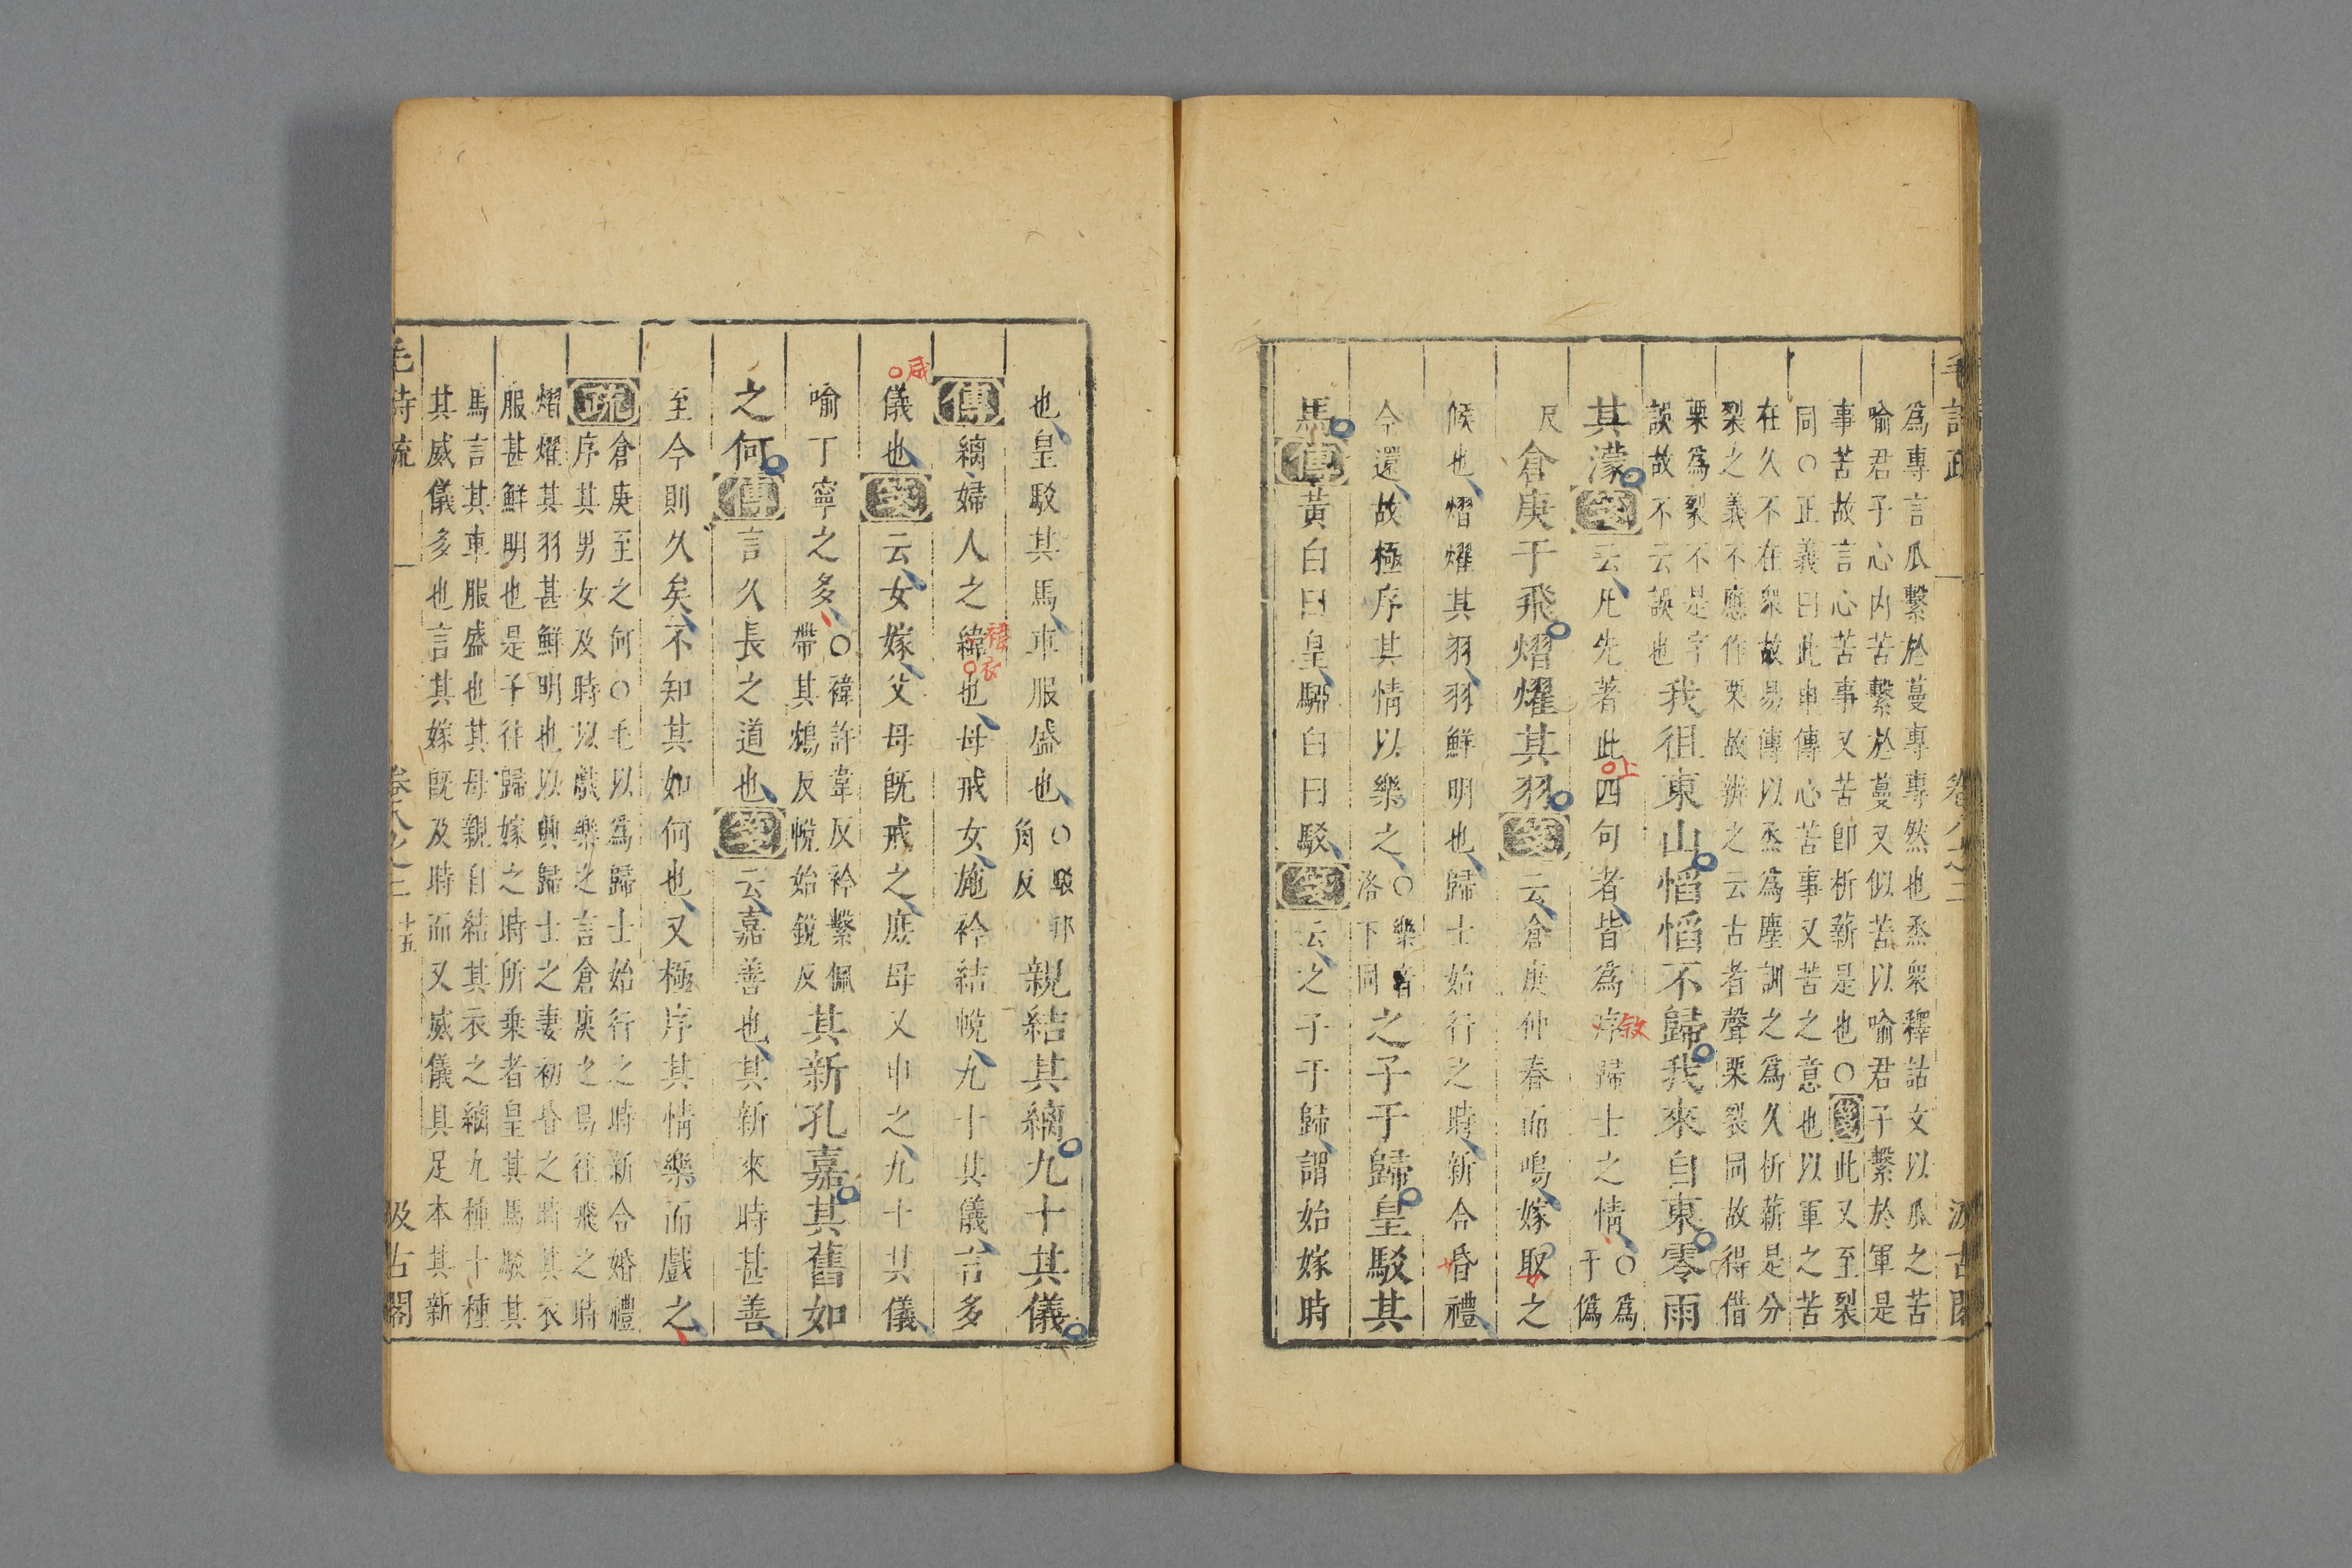 毛詩疏 卷八之二 汲古閣
爲專言瓜繫於蔓專專然也烝衆釋詁文以瓜之苦
喻君子心内苦繫於蔓又似苦以喻君子繫於軍是
事苦故言心苦事又苦卽析薪是也○箋此又至裂
同○正義曰此申傳心苦事又苦之意也以軍之苦
在久不在衆故易傳以烝爲塵訓之爲久析薪是分
裂之義不應作栗故辨之云古者聲栗裂同故得借
栗爲裂不是字
誤故不云誤也
我徂東山慆慆不歸我來自東零雨
其濛箋云凡先著此四句者皆爲序歸士之情○爲
于僞
反
倉庚于飛熠燿其羽箋云倉庚仲春而鳴嫁取之
候也熠燿其羽羽鮮明也歸士始行之時新合昏禮
今還故極序其情以樂之○樂音
洛下同
之子于歸皇駁其
馬傳黃白曰皇駵白曰駁箋云之子于歸謂始嫁時
也皇駁其馬車服盛也○駁邦
角反
親結其縭九十其儀
傳縭婦人之緯也母戒女施衿結帨九十其儀言多
儀也箋云女嫁父母旣戒之庶母又申之九十其儀
喻丁寧之多○褘許韋反衿繫佩
帶其鴆反帨始銳反
其新孔嘉其舊如
之何傳言久長之道也箋云嘉善也其新來時甚善
至今則久矣不知其如何也又極序其情樂而戲之
疏倉庚至之何○毛以爲歸士始行之時新合婚禮
序其男女及時以戲樂之言倉庚之鳥往飛之時
熠燿其羽甚鮮明也以興歸士之妻初昏之時其衣
服甚鮮明也是子往歸嫁之時所乘者皇其馬駁其
馬言其車服盛也其母親自結其衣之縭九種十種
其威儀多也言其嫁旣及時而又威儀具足本其新
毛詩疏 卷八之二 十五 汲古閣
威
褘
衣
上
敘